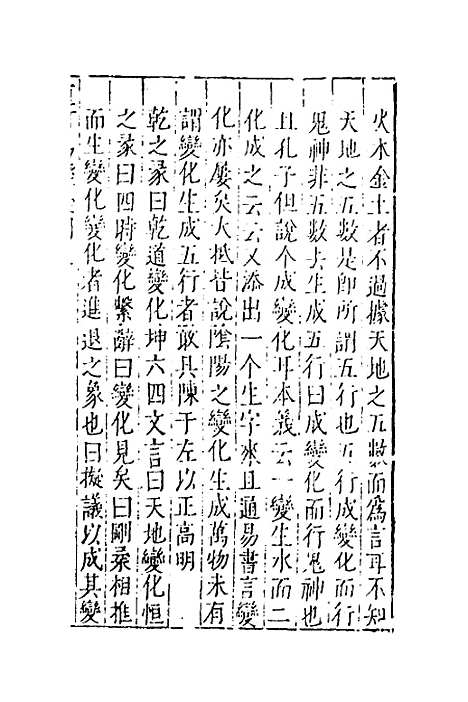 火木金土者不過據天地之五數而爲言耳不知
天地之五數是卽所謂五行也五行成變化而行
鬼神非五數去生成五行曰成變化而行鬼神也
且孔子但說个成變化耳本義云一變生水而二
化成之云云又添出一个生字來且通易書言變
化亦屢矣大抵皆說隂陽之變化生成萬物未有
謂變化生成五行者敢具陳于左以正高明
乾之彖曰乾道變化坤六四文言曰天地變化恒
之彖曰四時變化繫辭曰變化見矣曰剛柔相推
而生變化變化者進退之象也曰擬議以成其變